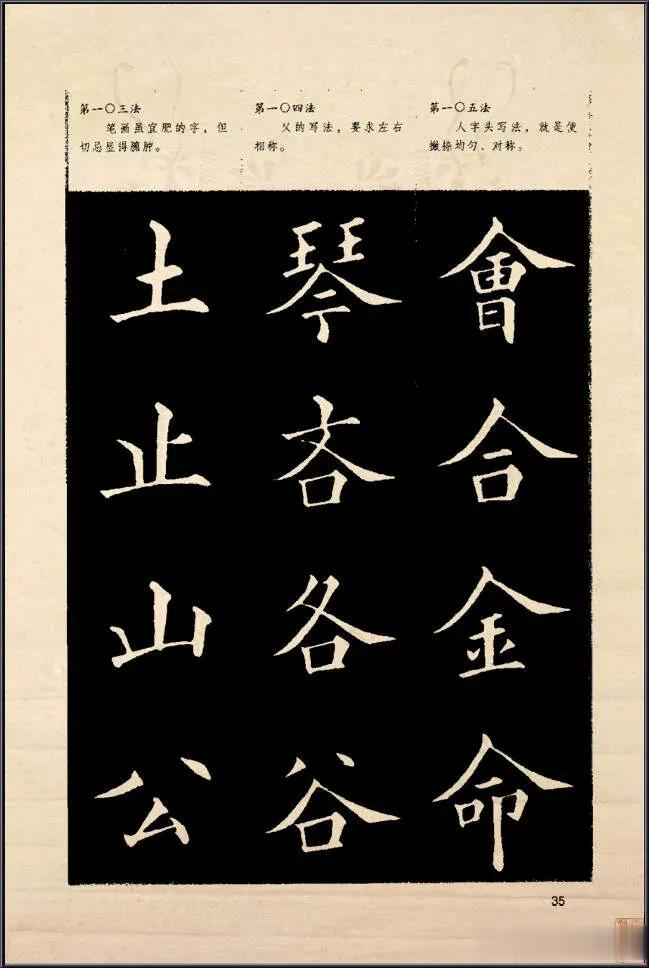 第一〇三法
笔画虽宜肥的字，但
切忌显得臃肿。
第一〇四法
父的写法，要求左右
相称。
第一〇五法
人字头写法，就是使
撇捺均匀、对称。
會合金命
琴吝各谷
土止山公
35